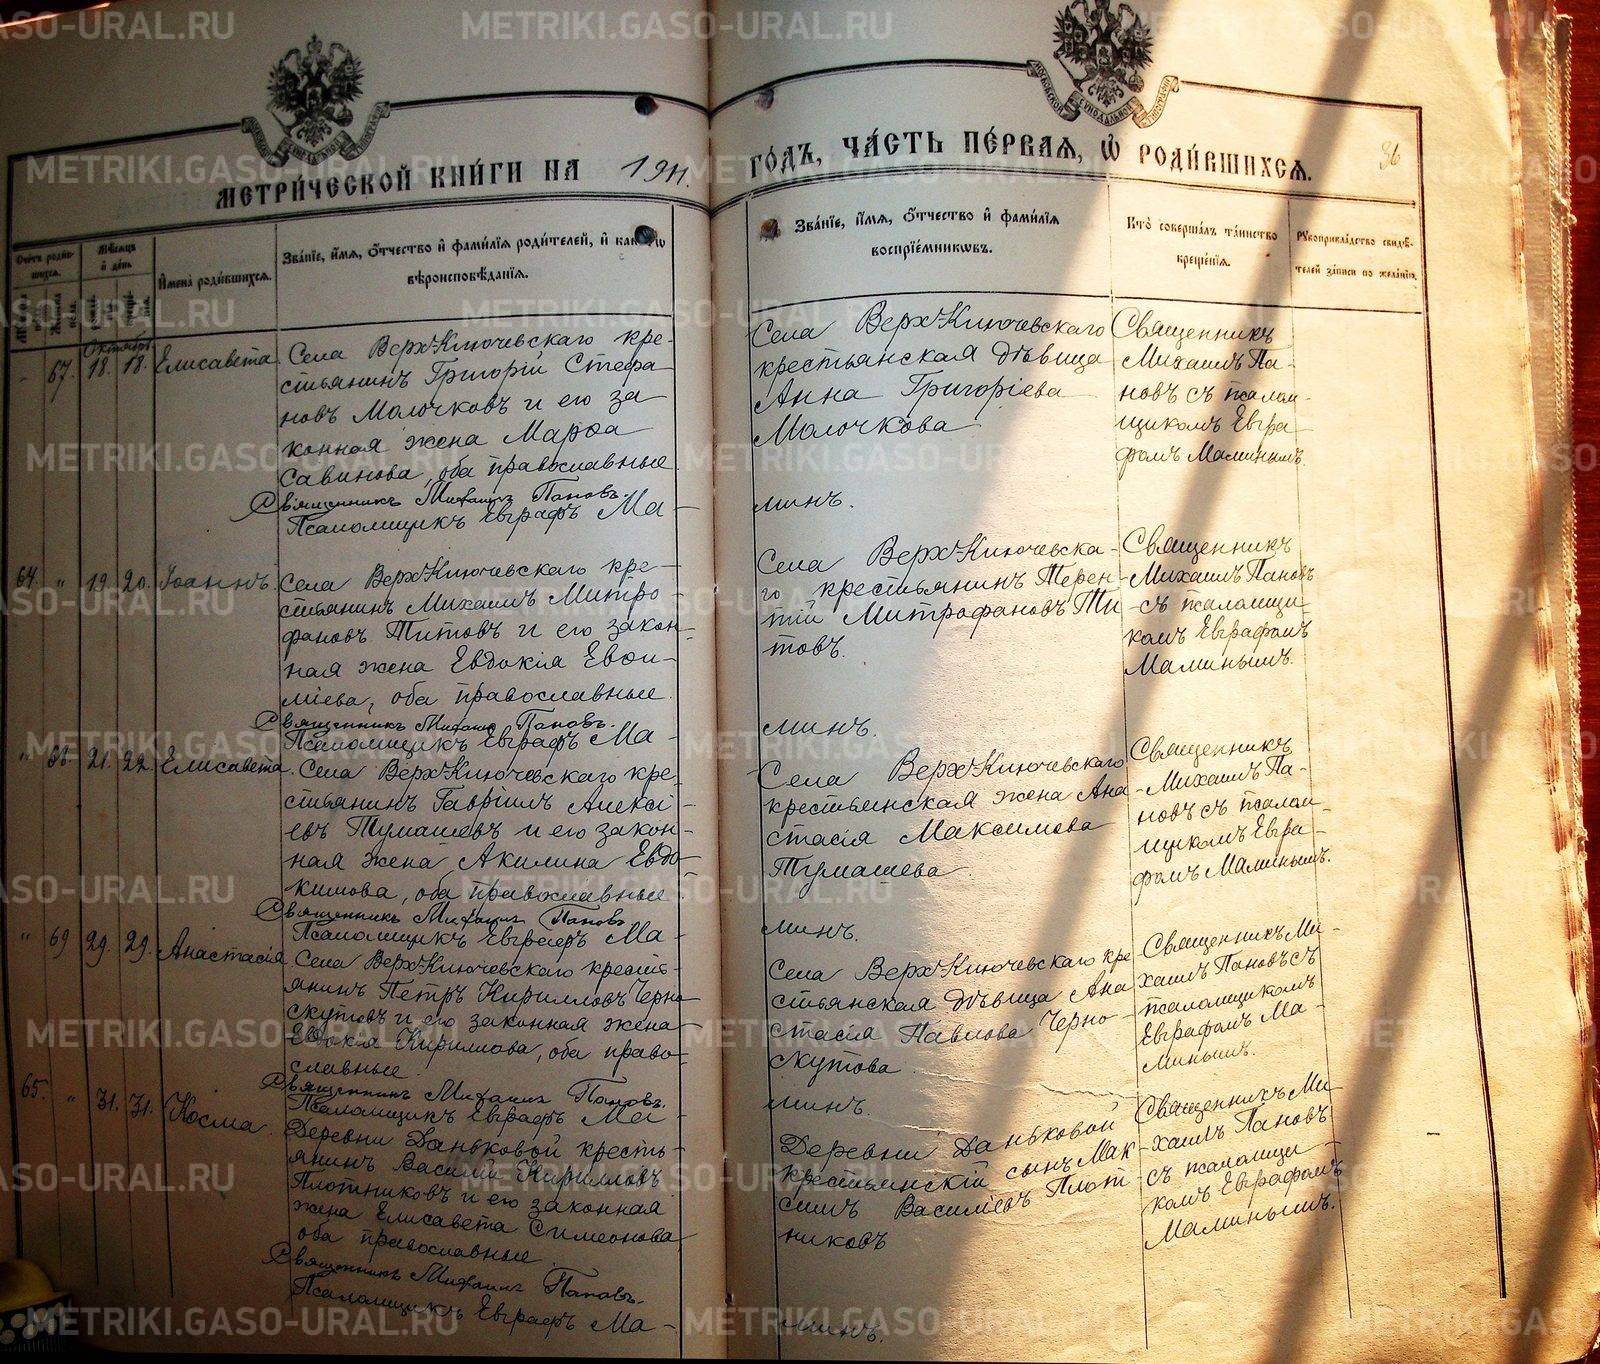 МЕТРИ́ЧЕСКОЙ КНИ́ГИ НА 1911.
ГО́ДЪ, ЧА́СТЬ ПЕ́РВАѦ, Ѡ҆ РОДИ́ВШИХСѦ.
36
Счетъ роди́вшихсѧ.
Мѣ́сѧцъ и҆ де́нь
И҆мена̀ роди́вшихсѧ.
Зва́нїе, и҆́мѧ, ѻ҆́тчество и҆ фами́лїѧ роди́телей, и҆
вѣроисповѣ́данїѧ.
Зва́нїе, и҆́мѧ, ѻ҆́тчество и҆ фами́лїѧ
воспрїе́мникѡвъ.
Кто̀ соверша́лъ та́инство
креще́нїѧ.
Рꙋкоприкла́дство свидѣ́-
телей за́писи по жела́нїю.
Октябрь
67. 18. 18. Елисавета
Села Верхъ-Ключевскаго кре-
стьянинъ Григорій Стефа
новъ Молочковъ и его за
конная жена Марѳа
Савинова, оба православные.
Священникъ Михаилъ Пановъ.
Псаломщикъ Евграфъ Ма-
Села Верхъ-Ключевскаго
крестьянская дѣвица
Анна Григоріева
Молочкова
минъ.
Священникъ
Михаилъ Па-
новъ съ псалом-
щикомъ Евгра
фомъ Маминымъ.
64. " 19. 20. Іоаннъ.
Села Верхъ-Ключевскаго кре-
стьянинъ Михаилъ Митро
фановъ Титовъ и его закон-
ная жена Евдокія Евѳи-
міева, оба православные.
Священникъ Михаилъ Пановъ.
Псаломщикъ Евграфъ Ма-
Села Верхъ-Ключевска-
го крестьянинъ Терен-
тій Митрофановъ Ти-
товъ.
минъ.
Священникъ
Михаилъ Пановъ
съ псаломщи-
комъ Евграфомъ
Маминымъ.
" 68. 21. 22. Елисавета.
Села Верхъ-Ключевскаго кре-
стьянинъ Гавріилъ Алексі-
евъ Тумашевъ и его закон-
ная жена Акилина Евдо
кимова, оба православные.
Священникъ Михаилъ Пановъ
Псаломщикъ Евграфъ Ма-
Села Верхъ-Ключевскаго
крестьянская жена Ана-
стасія Максимова
Тумашева.
минъ.
Священникъ
Михаилъ Па-
новъ съ псалом
щикомъ Евгра-
фомъ Маминымъ.
" 69 29. 29. Анастасія.
Села Верхъ-Ключевскаго кресть-
янинъ Петръ Кирилловъ Черно
скутовъ и его законная жена
Евдокія Кириллова, оба право-
славные.
Священникъ Михаилъ Пановъ.
Псаломщикъ Евграфъ Ма-
Села Верхъ-Ключевскаго кре
стьянская дѣвица Ана
стасія Павлова Черно-
скутова.
минъ.
Священникъ Ми-
хаилъ Пановъ съ
псаломщикомъ
Евграфомъ Ма-
минымъ.
65. " 31. 31. Косма.
Деревни Даньковой кресть-
янинъ Василій Кирилловъ
Плотниковъ и его законная
жена Елисавета Симеонова,
оба православные.
Священникъ Михаилъ Пановъ.
Псаломщикъ Евграфъ Ма-
Деревни Даньковой
крестьянскій сынъ Мак-
симъ Василіевъ Плот-
никовъ
минъ.
Священникъ Ми-
хаилъ Пановъ
съ псаломщи
комъ Евграфомъ
Маминымъ.
METRIKI.GASO-URAL.RU